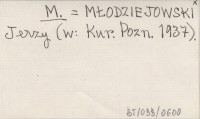 M. = MŁODZIEJOWSKI
Jerzy (w: Kur. Pozn. 1937).
bT/099/0600